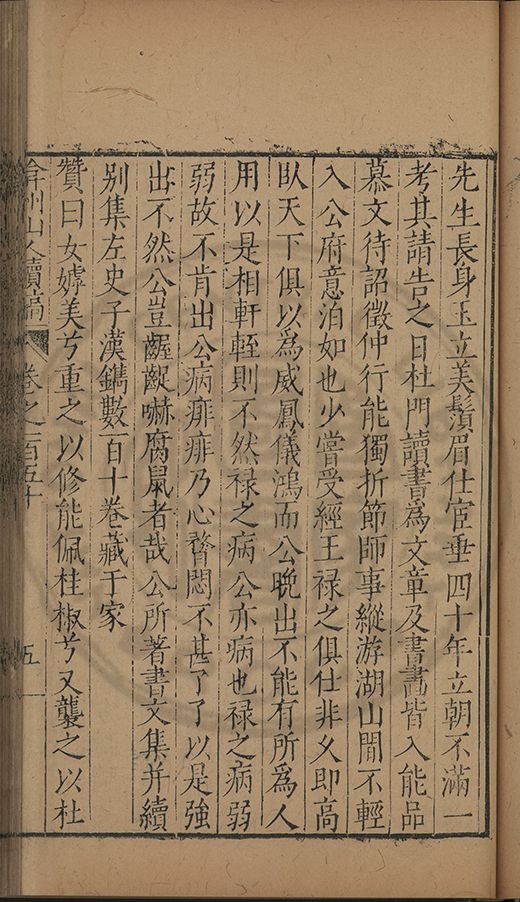 先生長身玉立美鬚眉仕宦垂四十年立朝不滿一
考其請告之日杜門讀書爲文章及書畫皆入能品
慕文待詔徵仲行能獨折節師事縱游湖山間不輕
入公府意泊如也少嘗受經王祿之俱仕非久即高
臥天下俱以爲威鳳儀鴻而公晚出不能有所爲人
用以是相軒輊則不然祿之病公亦病也祿之病弱
弱故不肯出公病痱痱乃心瞀悶不甚了了以是強
出不然公豈齷齪嚇腐鼠者哉公所著書文集并續
別集左史子漢鐫數百十卷藏于家
贊曰女嫭美兮重之以修能佩桂椒兮又襲之以杜
弇州山人續稿 卷之一百五十 五